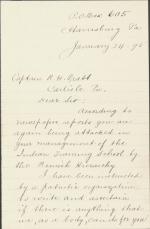 P.O. Box 605
Harrisburg Pa
January 24 - 96
Captain R. H. Pratt
Carlisle Pa.
Dear Sir:
According to
newspaper reports you are
again being attacked in
your management of the
Indian Training School by
the Romish Hierarchy
I have been instructed
by a patriotic organization
to write and ascertain
if there is anything that
we, as a body, can do for you